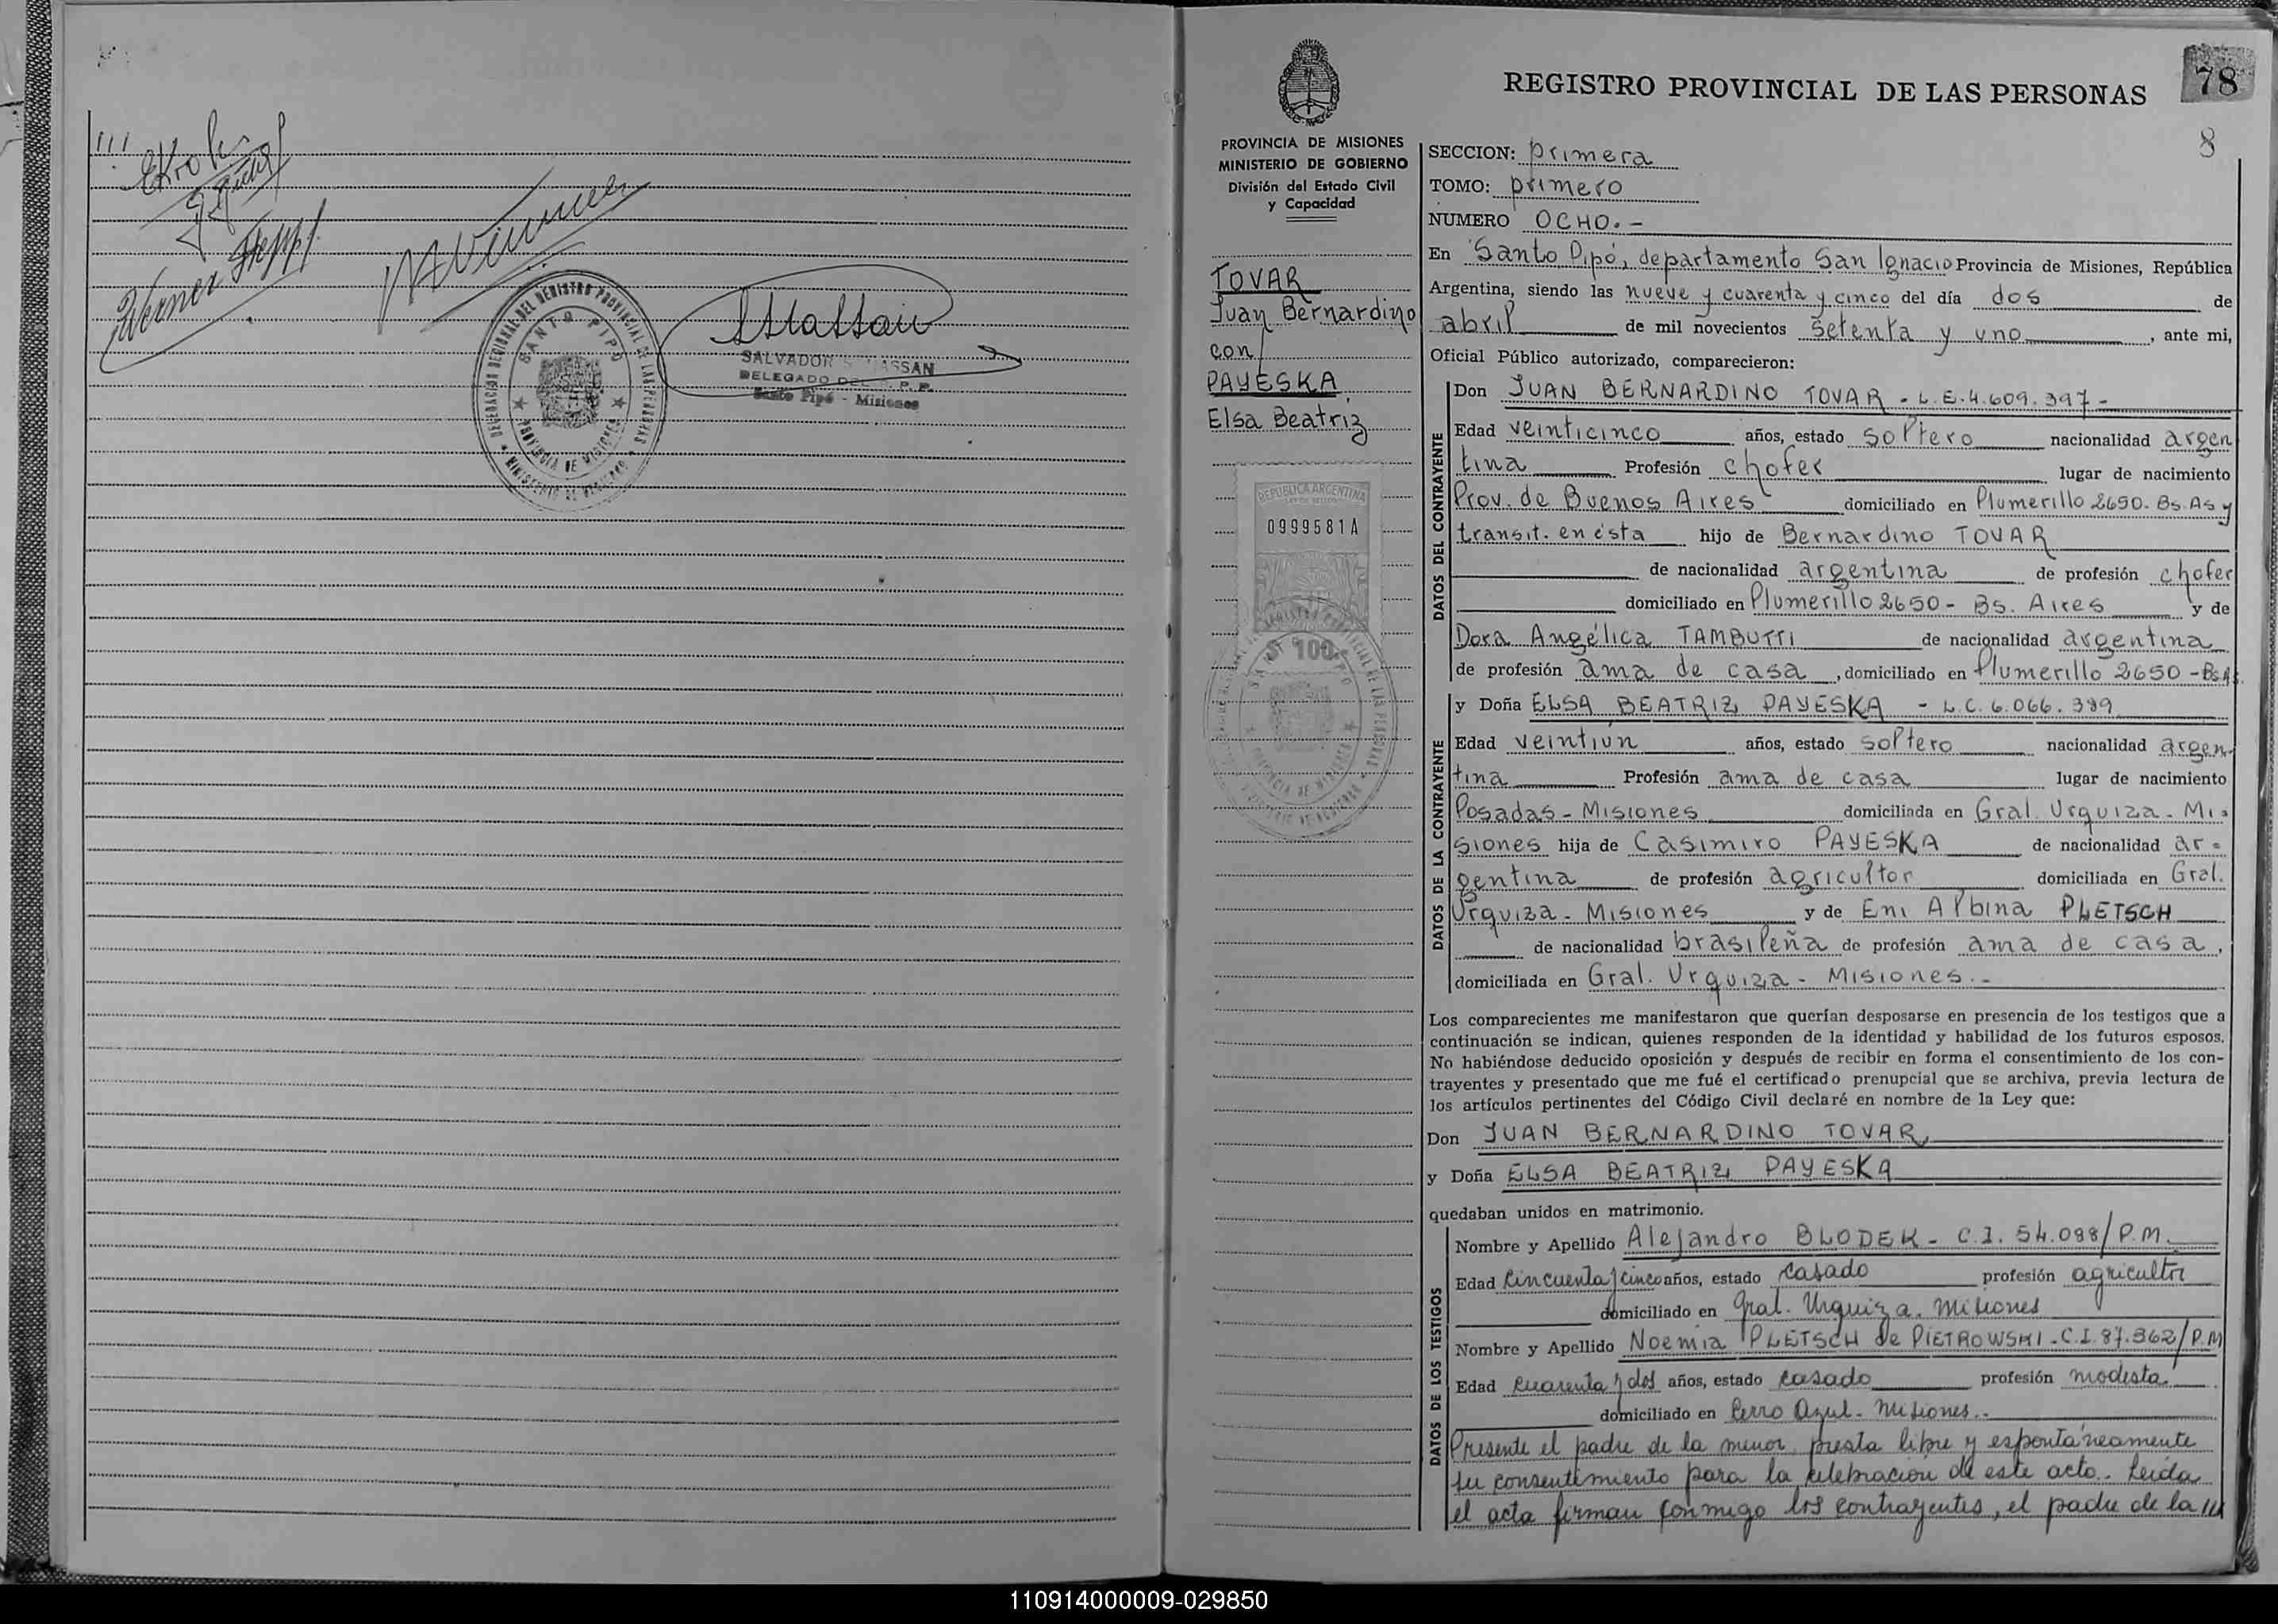 Werner Stepp
DELEGACION REGIONAL DEL REGISTRO PROVINCIAL DE LAS PERSONAS
SANTO PIPO
PROVINCIA DE MISIONES
MINISTERIO DE GOBIERNO
SALVADOR S. MASSAN
DELEGADO DEL R. P. P.
Santo Pipó - Misiones
78
8
REGISTRO PROVINCIAL DE LAS PERSONAS
PROVINCIA DE MISIONES
MINISTERIO DE GOBIERNO
División del Estado Civil
y Capacidad
TOVAR
Juan Bernardino
con
PAYESKA
Elsa Beatriz
REPUBLICA ARGENTINA
0999581A
$ 100
SECCION: primera
TOMO: primero
NUMERO OCHO.-
En Santo Pipó, departamento San Ignacio Provincia de Misiones, República
Argentina, siendo las nueve y cuarenta y cinco del día dos de
abril de mil novecientos setenta y uno, ante mi,
Oficial Público autorizado, comparecieron:
DATOS DEL CONTRAYENTE
Don JUAN BERNARDINO TOVAR - L.E.4.609.397-
Edad veinticinco años, estado soltero nacionalidad argen
tina Profesión chofer lugar de nacimiento
Prov. de Buenos Aires domiciliado en Plumerillo 2650-Bs.As y
transit. en ésta hijo de Bernardino TOVAR
de nacionalidad argentina de profesión chofer
domiciliado en Plumerillo 2650- Bs. Aires y de
Dora Angélica TAMBUTTI de nacionalidad argentina
de profesión ama de casa, domiciliado en Plumerillo 2650-Bs.As.
DATOS DE LA CONTRAYENTE
y Doña ELSA BEATRIZ PAYESKA - L.C. 6.066.389
Edad veintiun años, estado soltero nacionalidad argen-
tina Profesión ama de casa lugar de nacimiento
Posadas - Misiones domiciliada en Gral. Urquiza - Mi-
siones hija de Casimiro PAYESKA de nacionalidad ar-
gentina de profesión agricultor domiciliada en Gral.
Urquiza - Misiones y de Eni Albina PLETSCH
de nacionalidad brasileña de profesión ama de casa,
domiciliada en Gral. Urquiza - Misiones.-
Los comparecientes me manifestaron que querían desposarse en presencia de los testigos que a
continuación se indican, quienes responden de la identidad y habilidad de los futuros esposos.
No habiéndose deducido oposición y después de recibir en forma el consentimiento de los con-
trayentes y presentado que me fué el certificado prenupcial que se archiva, previa lectura de
los artículos pertinentes del Código Civil declaré en nombre de la Ley que:
Don JUAN BERNARDINO TOVAR
y Doña ELSA BEATRIZ PAYESKA
quedaban unidos en matrimonio.
DATOS DE LOS TESTIGOS
Nombre y Apellido Alejandro BLODEK - C.I. 54.098/P.M.
Edad Cincuenta y cinco años, estado casado profesión agricultor
domiciliado en Gral. Urquiza. Misiones
Nombre y Apellido Noemia PLETSCH de PIETROWSKI - C.I. 87.362/P.M
Edad cuarenta y dos años, estado casado profesión modista
domiciliado en Cerro Azul - Misiones.-
Presente el padre de la menor, presta libre y espontáneamente
su consentimiento para la celebración de este acto.. Leida
el acta firman conmigo los contrayentes, el padre de la ///
110914000009-029850